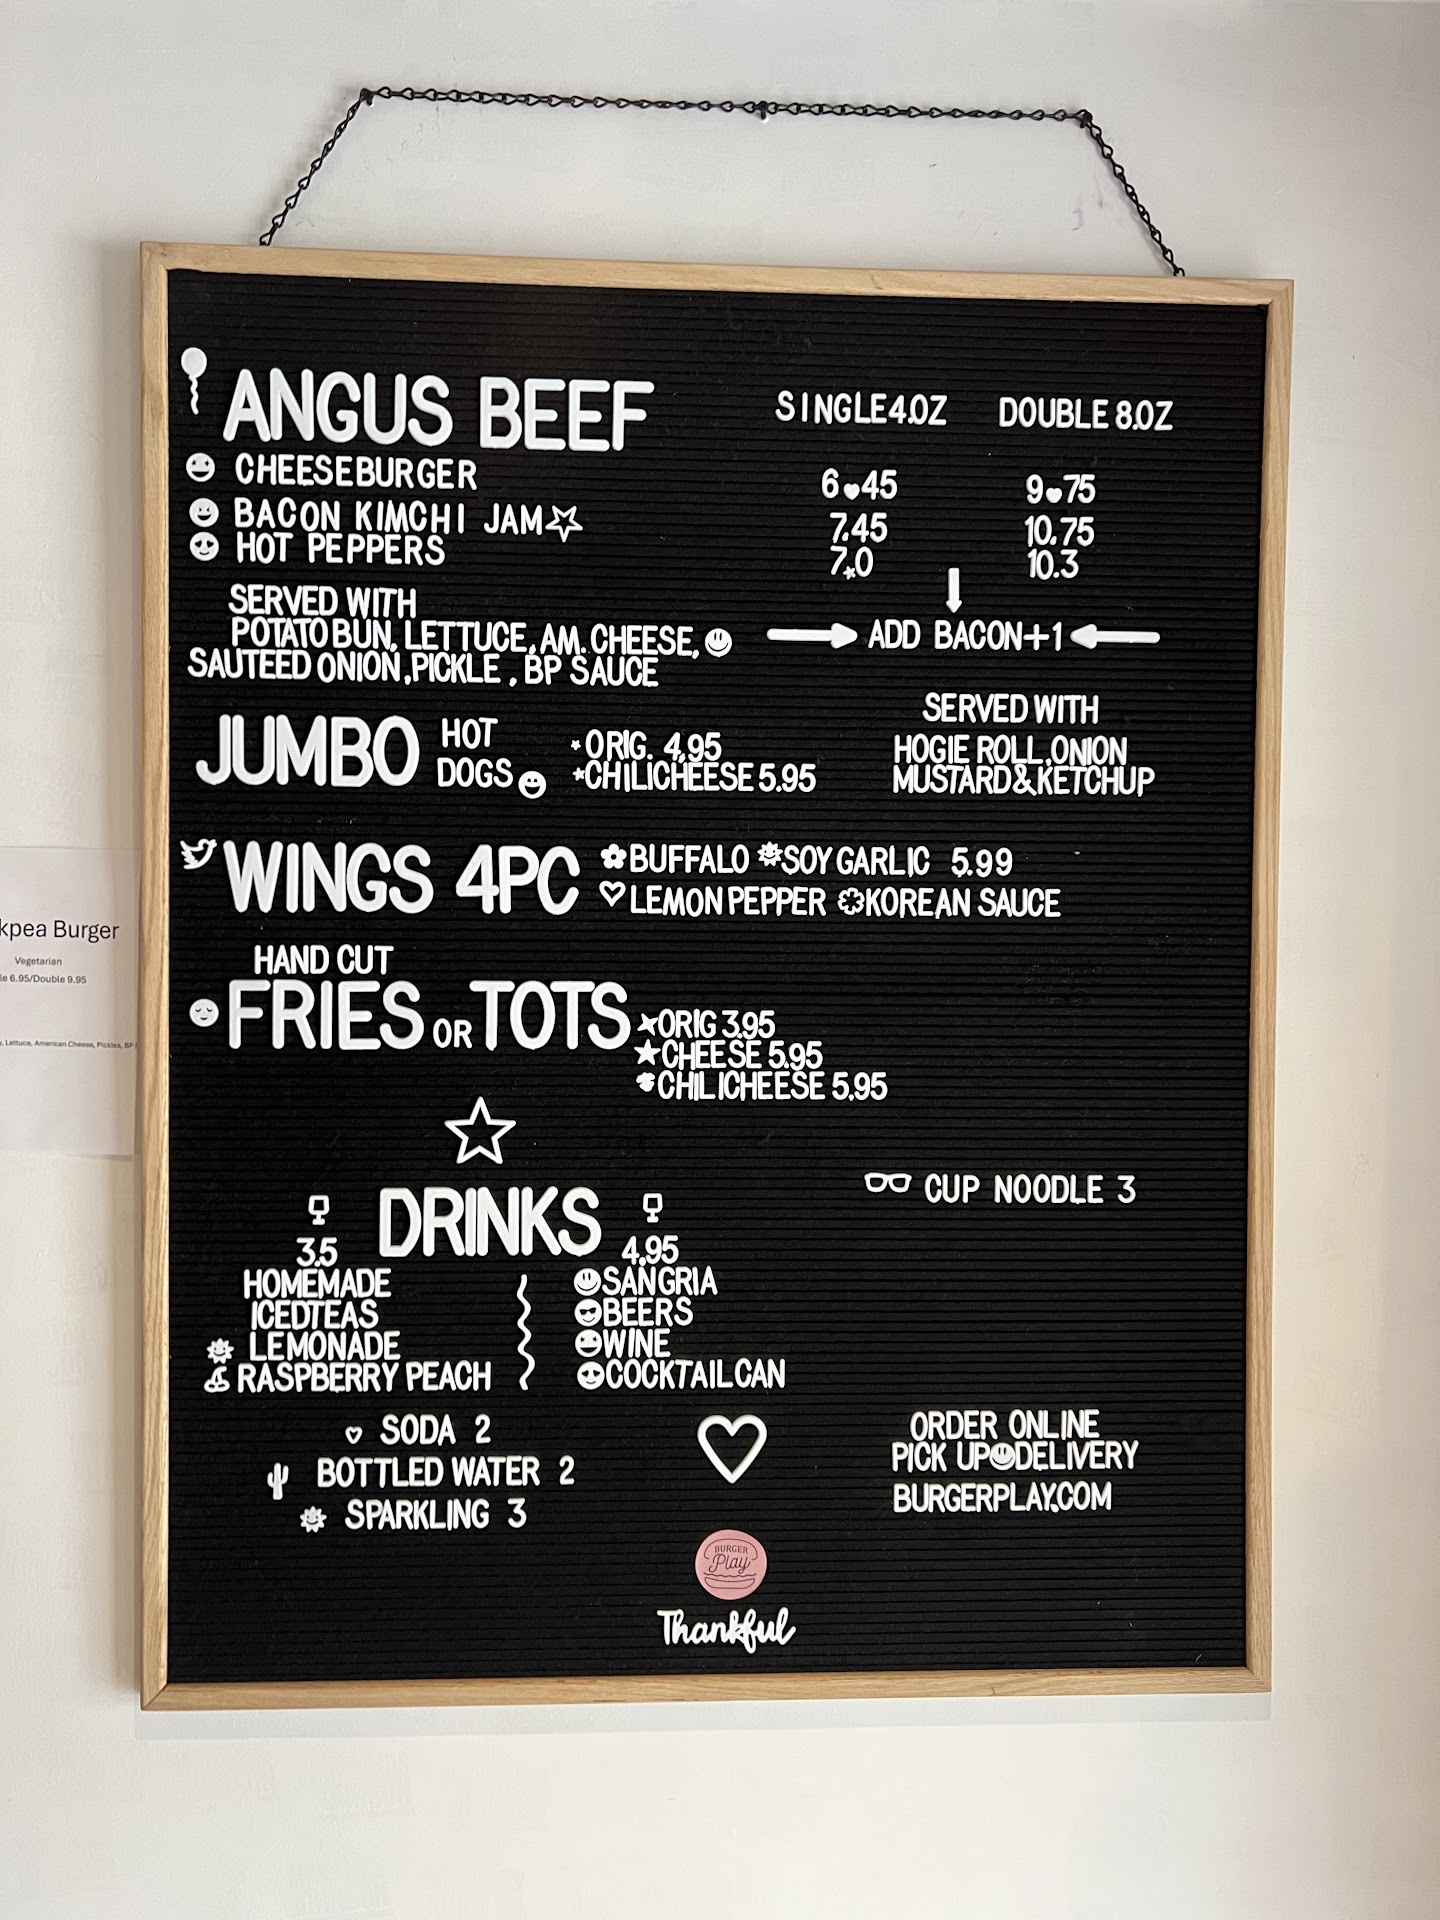 ANGUS BEEF SINGLE 4.OZ DOUBLE 8.OZ
CHEESEBURGER 6 45 9 75
BACON KIMCHI JAM 7.45 10.75
HOT PEPPERS 7. 0 10.3
SERVED WITH
POTATO BUN, LETTUCE, AM. CHEESE,
SAUTEED ONION, PICKLE, BP SAUCE
ADD BACON+1
JUMBO HOT DOGS
ORIG. 4.95
CHILICHEESE 5.95
SERVED WITH
HOGIE ROLL, ONION
MUSTARD&KETCHUP
WINGS 4PC BUFFALO SOY GARLIC 5.99
LEMON PEPPER KOREAN SAUCE
HAND CUT
FRIES OR TOTS
ORIG 3.95
CHEESE 5.95
CHILICHEESE 5.95
CUP NOODLE 3
DRINKS
3.5
HOMEMADE
ICEDTEAS
LEMONADE
RASPBERRY PEACH
4.95
SANGRIA
BEERS
WINE
COCKTAIL CAN
SODA 2
BOTTLED WATER 2
SPARKLING 3
ORDER ONLINE
PICK UP DELIVERY
BURGERPLAY.COM
BURGER
Play
Thankful
kpea Burger
Vegetarian
le 6.95/Double 9.95
, Lettuce, American Cheese, Pickles, BP